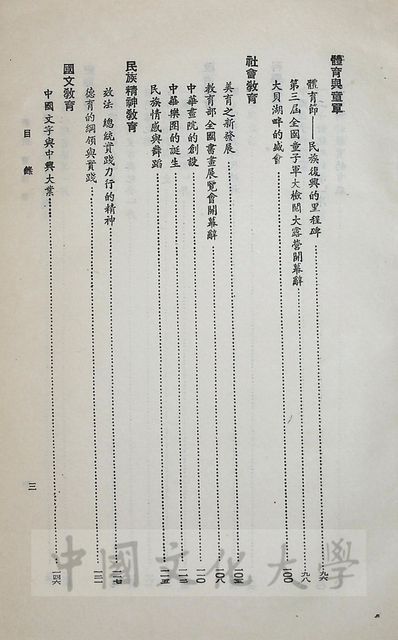 體育與童軍
體育節——民族復興的里程碑……九六
第三屆全國童子軍大檢閱大露營開幕辭……九八
大貝湖畔的盛會……一〇〇
社會教育
美育之新發展……一〇五
教育部全國書畫展覽會開幕辭……一〇八
中華畫院的創設……一一〇
中華樂團的誕生……一一三
民族情感與舞蹈……一一五
民族精神教育
效法 總統實踐力行的精神……一二七
德育的綱領與實踐……一三一
國文教育
中國文字與中興大業……一四六
目錄
三
中國文化大學